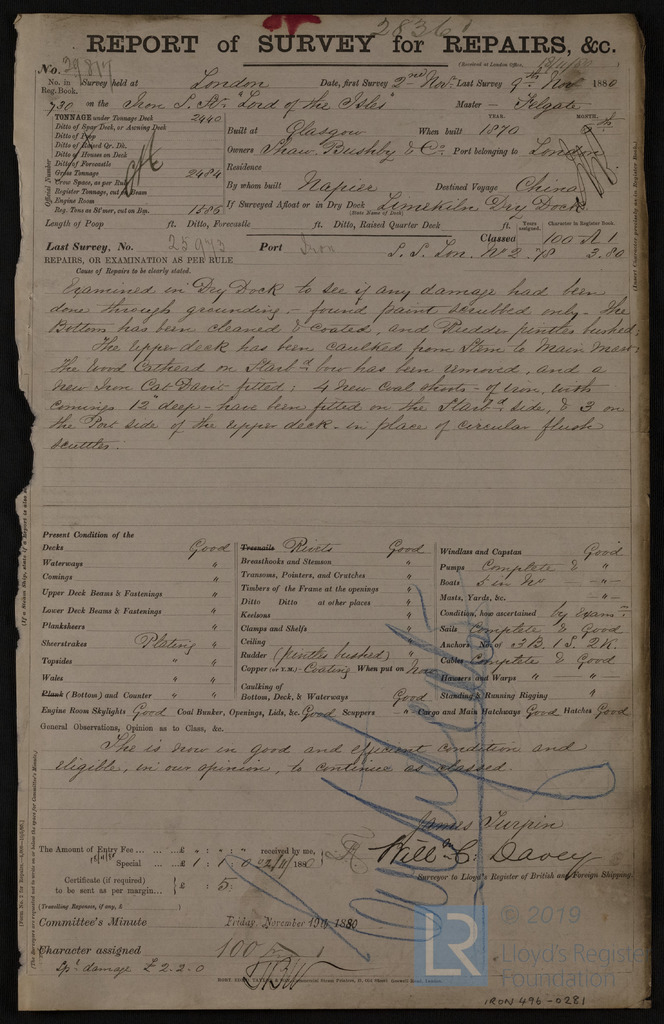 2836
REPORT of SURVEY for REPAIRS, &c.
No. 39817 (Received at London Office,
No. in Reg. Book. Survey held at London Date, first Survey 2nd Novr Last Survey 9th Nov 1880
730 on the Iron S. Sr. "Lord of the Isles" Master Felgate
TONNAGE under Tonnage Deck 2440
Ditto of Spar Deck, or Awning Deck
Ditto of Poop
Ditto of Raised Qr. Dk.
Ditto of Houses on Deck
Ditto of Forecastle
Gross Tonnage 2484
Crew Space, as per Rule
Register Tonnage, cut on Beam
Engine Room
Reg. Tons as St'mer, cut on Bm. 1586
Official Number
YEAR. MONTH.
Built at Glasgow When built 1870
Owners Shaw Bushby & Co. Port belonging to London
Residence
By whom built Napier Destined Voyage China
If Surveyed Afloat or in Dry Dock Limekiln Dry Dock
(State Name of Dock)
Length of Poop ft. Ditto, Forecastle ft. Ditto, Raised Quarter Deck ft. Years assigned. Character in Register Book.
Classed 100 A 1
Last Survey, No. 25973 Port Iron S.S. Lon. No 2. 78 3.80
REPAIRS, OR EXAMINATION AS PER RULE
Cause of Repairs to be clearly stated.
Examined in Dry Dock to see if any damage had been
done through grounding, - found paint scrubbed only. The
Bottom has been cleaned & coated, and Rudder pintles bushed.
The upper deck has been caulked from Stem to Main Mast.
The Wood Cathead on Starbd bow has been removed, and a
new Iron Cat Davit fitted; 4 New Coal shoots - of iron, with
comings 12" deep - have been fitted on the Starbd side, & 3 on
the Port side of the upper deck - in place of circular flush
scuttles.
Present Condition of the
Decks Good
Waterways "
Comings "
Upper Deck Beams & Fastenings "
Lower Deck Beams & Fastenings "
Planksheers "
Sheerstrakes Plating "
Topsides " "
Wales " "
Plank (Bottom) and Counter " "
Treenails Rivets Good
Breasthooks and Stemson "
Transoms, Pointers, and Crutches "
Timbers of the Frame at the openings "
Ditto Ditto at other places "
Keelsons "
Clamps and Shelfs "
Ceiling "
Rudder (pintles bushed) "
Copper (or Y.M.) Coating When put on Now
Caulking of
Bottom, Deck, & Waterways Good
Windlass and Capstan Good
Pumps Complete & "
Boats 5 in No " "
Masts, Yards, &c. "
Condition, how ascertained by Examn
Sails Complete & Good
Anchors No. of 3 B. 1 S. 2 K.
Cables Complete & Good
Hawsers and Warps " "
Standing & Running Rigging " "
Engine Room Skylights Good Coal Bunker, Openings, Lids, &c. Good Scuppers " Cargo and Main Hatchways Good Hatches Good
General Observations, Opinion as to Class, &c.
She is now in good and efficient condition and
eligible, in our opinion, to continue as classed.
James Turpin
The Amount of Entry Fee £ " : " : " received by me,
Special £ 1 : 1 : 0 1880
Willm C. Davey
Surveyor to Lloyd's Register of British and Foreign Shipping
Certificate (if required) to be sent as per margin £ : 5:
(Travelling Expenses, if any, £ )
Committee's Minute Friday November 19th 1880
Character assigned 100 A 1
Spl damage £ 2.2.0
© 2019
LR Lloyd's Register
Foundation
IRON 496-0281